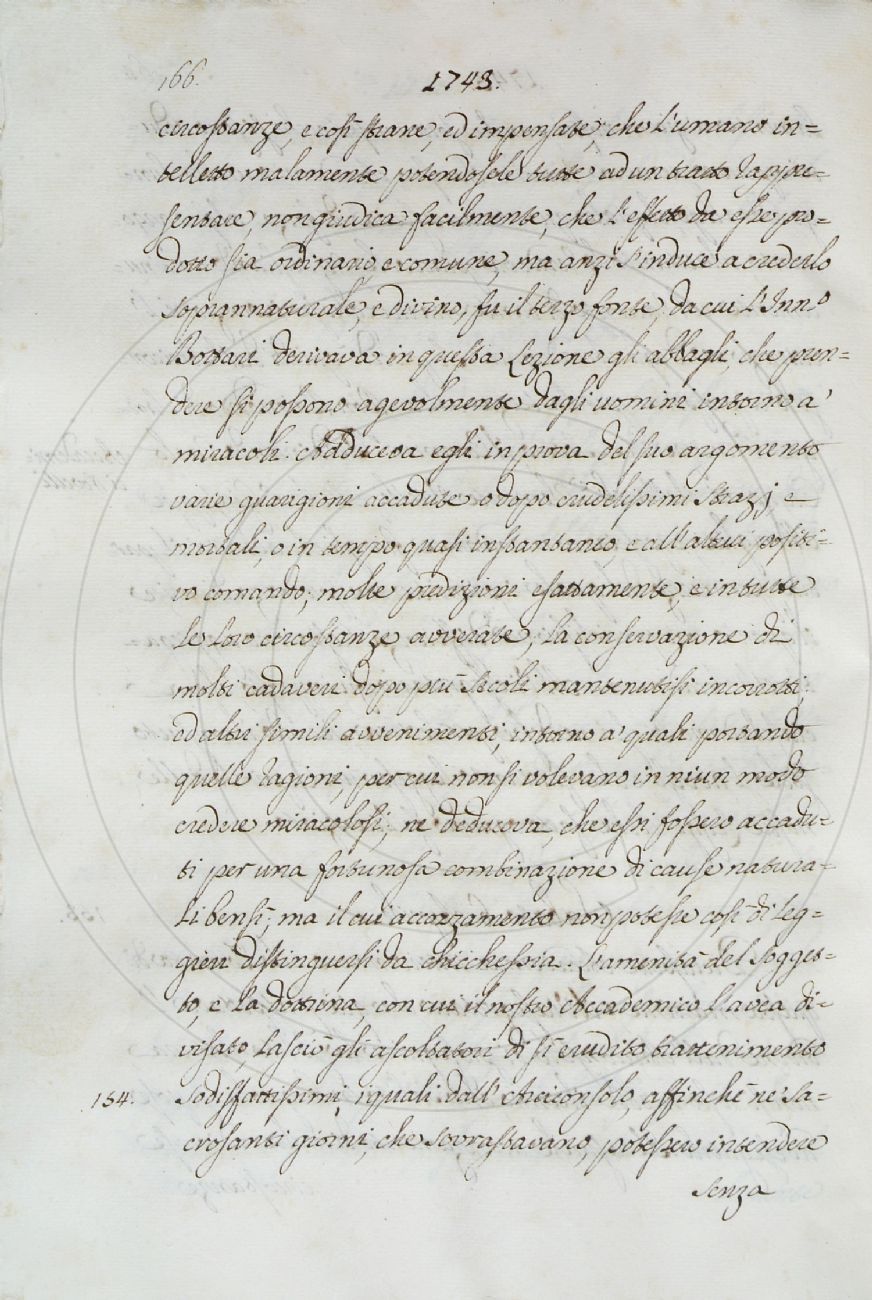 166. 1743.
circostanze, e così strane, ed impensate, che l'umano in=
telletto malamente potendosele tutte ad un tratto rappre=
sentare, non giudica facilmente, che l'effetto da esse pro=
dotto sia ordinario, e comune, ma anzi s'induce a crederlo
soprannaturale, e divino, fu il terzo fonte, da cui l'Inn.o
Bottari derivava in questa Lezione gli abbagli, che pren=
dere si possono agevolmente dagli uomini intorno a'
miracoli. Adduceva egli in prova del suo argomento
varie guarigioni accadute o dopo crudelissimi strazj, e
mortali, o in tempo quasi instantaneo, e all'altrui positi=
vo comando; molte predizioni esattamente, e in tutte
le loro circostanze avverate; la conservazione di
molti cadaveri dopo più secoli mantenutisi incorrotti;
ed altri simili avvenimenti, intorno a' quali portando
quelle ragioni, per cui non si volevano in niun modo
credere miracolosi, ne deduceva, che essi fossero accadu=
ti per una fortunosa combinazione di cause natura=
li bensì, ma il cui accozzamento non potesse così di leg=
gieri distinguersi da chicchessia. L'amenità del sogget=
to, e la dottrina, con cui il nostro Accademico l'avea di=
visato, lasciò gli ascoltatori di sì erudito trattenimento
154. sodisfattissimi, i quali dall'Arciconsolo, affinchè ne' sa=
crosanti giorni, che sovrastavano, potessero intendere
senza